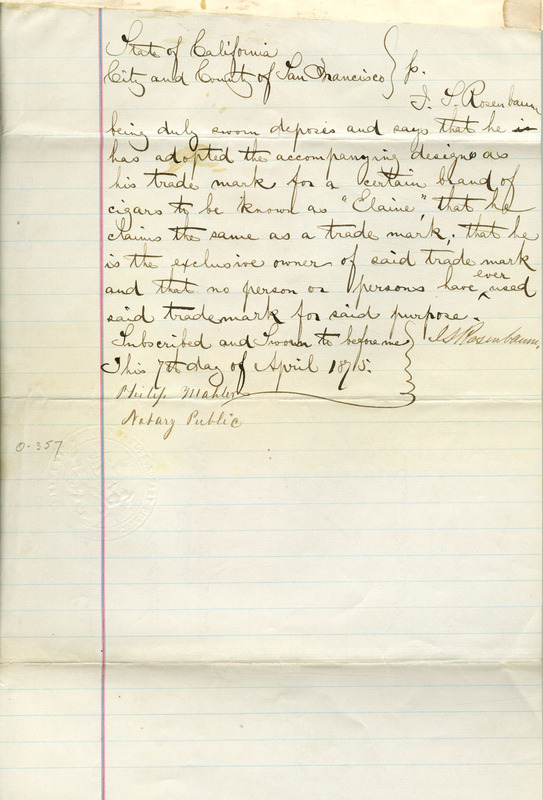 State of California
City and County of San Francisco } ss.
I. S. Rosenbaum
being duly sworn deposes and says that he is
has adopted the accompanying design as
his trade mark for a certain brand of
cigars to be known as "Elaine", that he
claims the same as a trade mark, that he
is the exclusive owner of said trade mark
and that no person or persons have ever used
said trademark for said purpose.
Subscribed and Sworn to before me } I S Rosenbaum.
This 7th day of April 1875.
Philip Mahler
Notary Public
0-357